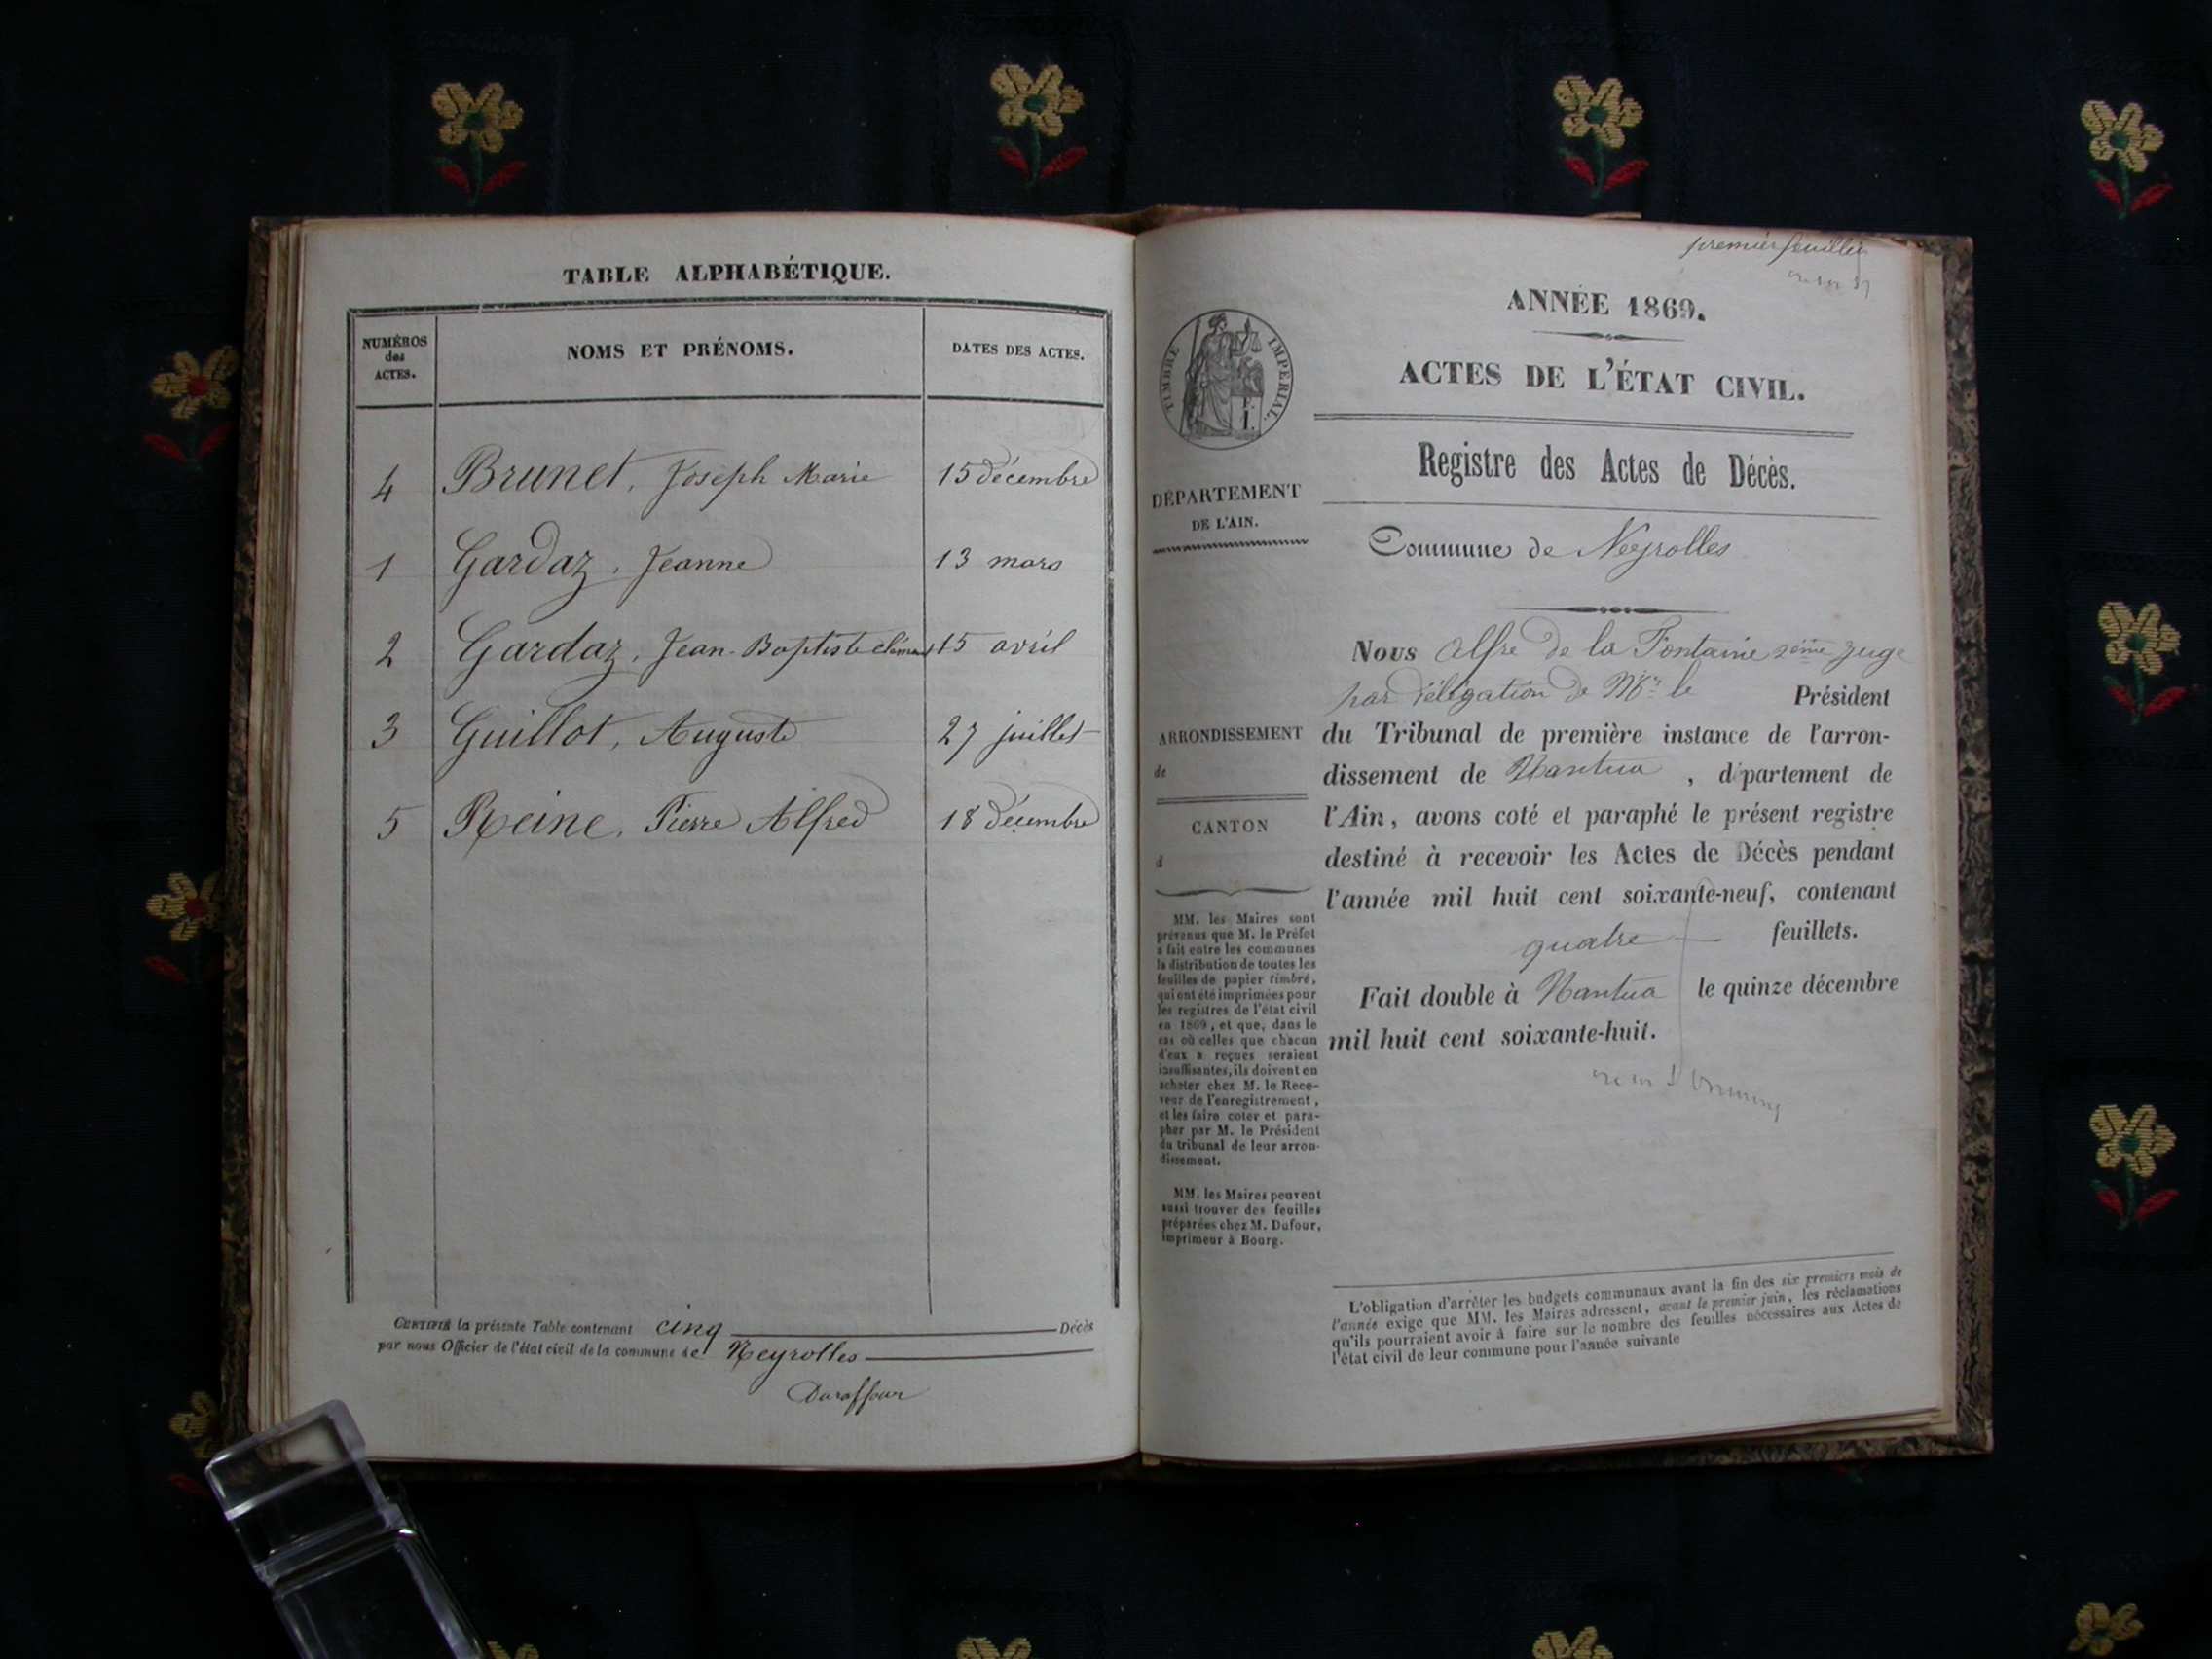 TABLE ALPHABÉTIQUE.
NUMÉROS
des
ACTES.
NOMS ET PRÉNOMS.
DATES DES ACTES.
4 Brunet, Joseph Marie 15 décembre
1 Gardaz, Jeanne 13 mars
2 Gardaz, Jean-Baptiste 15 avril
3 Guillot, Auguste 27 juillet
5 Reine, Pierre Alfred 18 décembre
CERTIFIÉ la présente Table contenant cinq Décès
par nous Officier de l'état civil de la commune de Neyrolles
Duraffour
premier feuillet
ANNÉE 1869.
ACTES DE L'ÉTAT CIVIL.
TIMBRE IMPERIAL.
Registre des Actes de Décès.
DÉPARTEMENT
DE L'AIN.
Commune de Neyrolles
ARRONDISSEMENT
de
CANTON
d
MM. les Maires sont
prévenus que M. le Préfet
a fait entre les communes
la distribution de toutes les
feuilles de papier timbré,
qui ont été imprimées pour
les registres de l'état civil
en 1869, et que, dans le
cas où celles que chacun
d'eux a reçues seraient
insuffisantes, ils doivent en
acheter chez M. le Rece-
veur de l'enregistrement,
et les faire coter et para-
pher par M. le Président
du tribunal de leur arron-
dissement.
MM. les Maires peuvent
aussi trouver des feuilles
préparées chez M. Dufour,
imprimeur à Bourg.
Nous de la Fontaine juge
par délégation de Mr le Président
du Tribunal de première instance de l'arron-
dissement de Nantua, département de
l'Ain, avons coté et paraphé le présent registre
destiné à recevoir les Actes de Décès pendant
l'année mil huit cent soixante-neuf, contenant
quatre feuillets.
Fait double à Nantua le quinze décembre
mil huit cent soixante-huit.
L'obligation d'arrêter les budgets communaux avant la fin des six premiers mois de
l'année exige que MM. les Maires adressent, avant le premier juin, les réclamations
qu'ils pourraient avoir à faire sur le nombre des feuilles nécessaires aux Actes de
l'état civil de leur commune pour l'année suivante